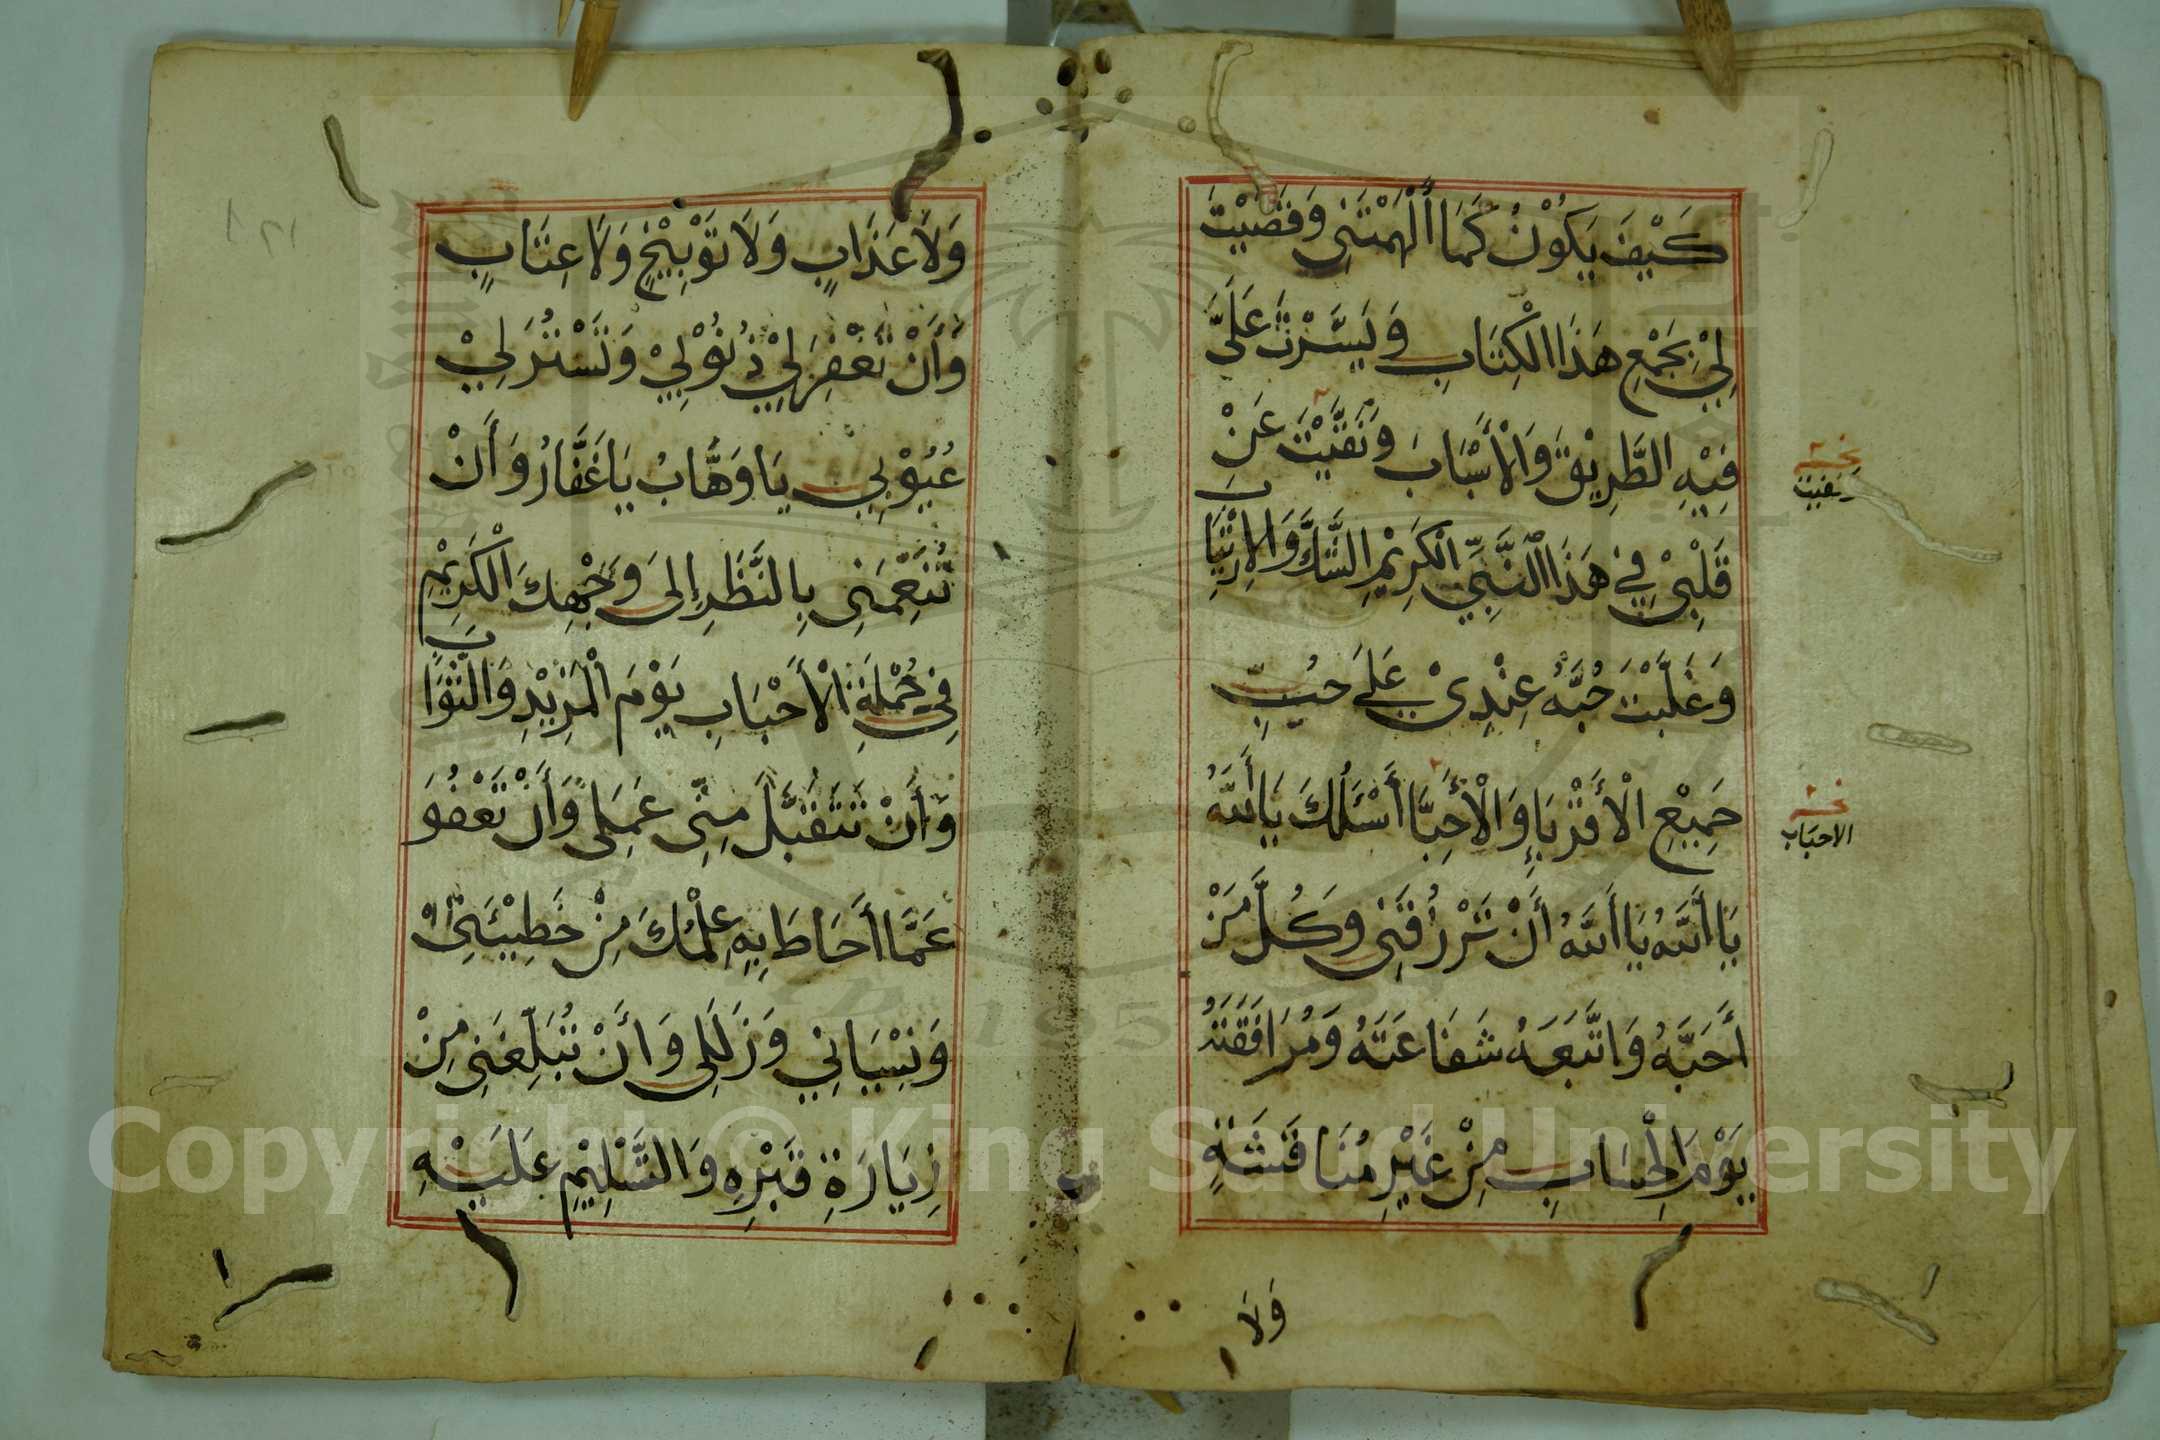 كَيْفَ يَكُوْنُ كَمَا أَلْهَمْتَنِي وَقَضَيْتَ
لِيْ بِجَمْعِ هَذَا الْكِتَابِ وَيَسَّرْتَ عَلَيَّ
فِيْهِ الطَّرِيْقَ وَالْأَسْبَابَ وَنَفَّيْتَ عَنْ
قَلْبِيْ فِيْ هَذَا النَّبِيِّ الْكَرِيْمِ الشَّكَّ وَالِارْتِيَابَ
وَغَلَّبْتَ حُبَّهُ عِنْدِيْ عَلَى حُبِّ
جَمِيْعِ الْأَقْرِبَاءِ وَالْأَحِبَّا أَسْئَلُكَ يَا أَللَّهُ
يَا أَللَّهُ يَا أَللَّهُ أَنْ تَرْزُقَنِي وَكُلَّ مَنْ
أَحَبَّهُ وَاتَّبَعَهُ شَفَاعَتَهُ وَمُرَافَقَتَهُ
يَوْمَ الْحِسَابِ مِنْ غَيْرِ مُنَاقَشَةٍ
نخـ
نفيت
نخـ
الاحباب
وَلَا
وَلَا عَذَابٍ وَلَا تَوْبِيْخٍ وَلَا عِتَابٍ
وَأَنْ تَغْفِرَ لِيْ ذُنُوْبِيْ وَتَسْتُرَ لِيْ
عُيُوْبِي يَا وَهَّابُ يَا غَفَّارُ وَأَنْ
تُنَعِّمَنِي بِالنَّظَرِ إِلَى وَجْهِكَ الْكَرِيْمِ
فِي جُمْلَةِ الْأَحْبَابِ يَوْمَ الْمَزِيْدِ وَالثَّوَابِ
وَأَنْ تَتَقَبَّلَ مِنِّي عَمَلِي وَأَنْ تَعْفُوَ
عَمَّا أَحَاطَ بِهِ عِلْمُكَ مِنْ خَطِيْئَتِي
وَنِسْيَانِي وَزَلَلِي وَأَنْ تُبَلِّغَنِي مِنْ
زِيَارَةِ قَبْرِهِ وَالتَّسْلِيْمِ عَلَيْهِ
Copyright © King Saud University